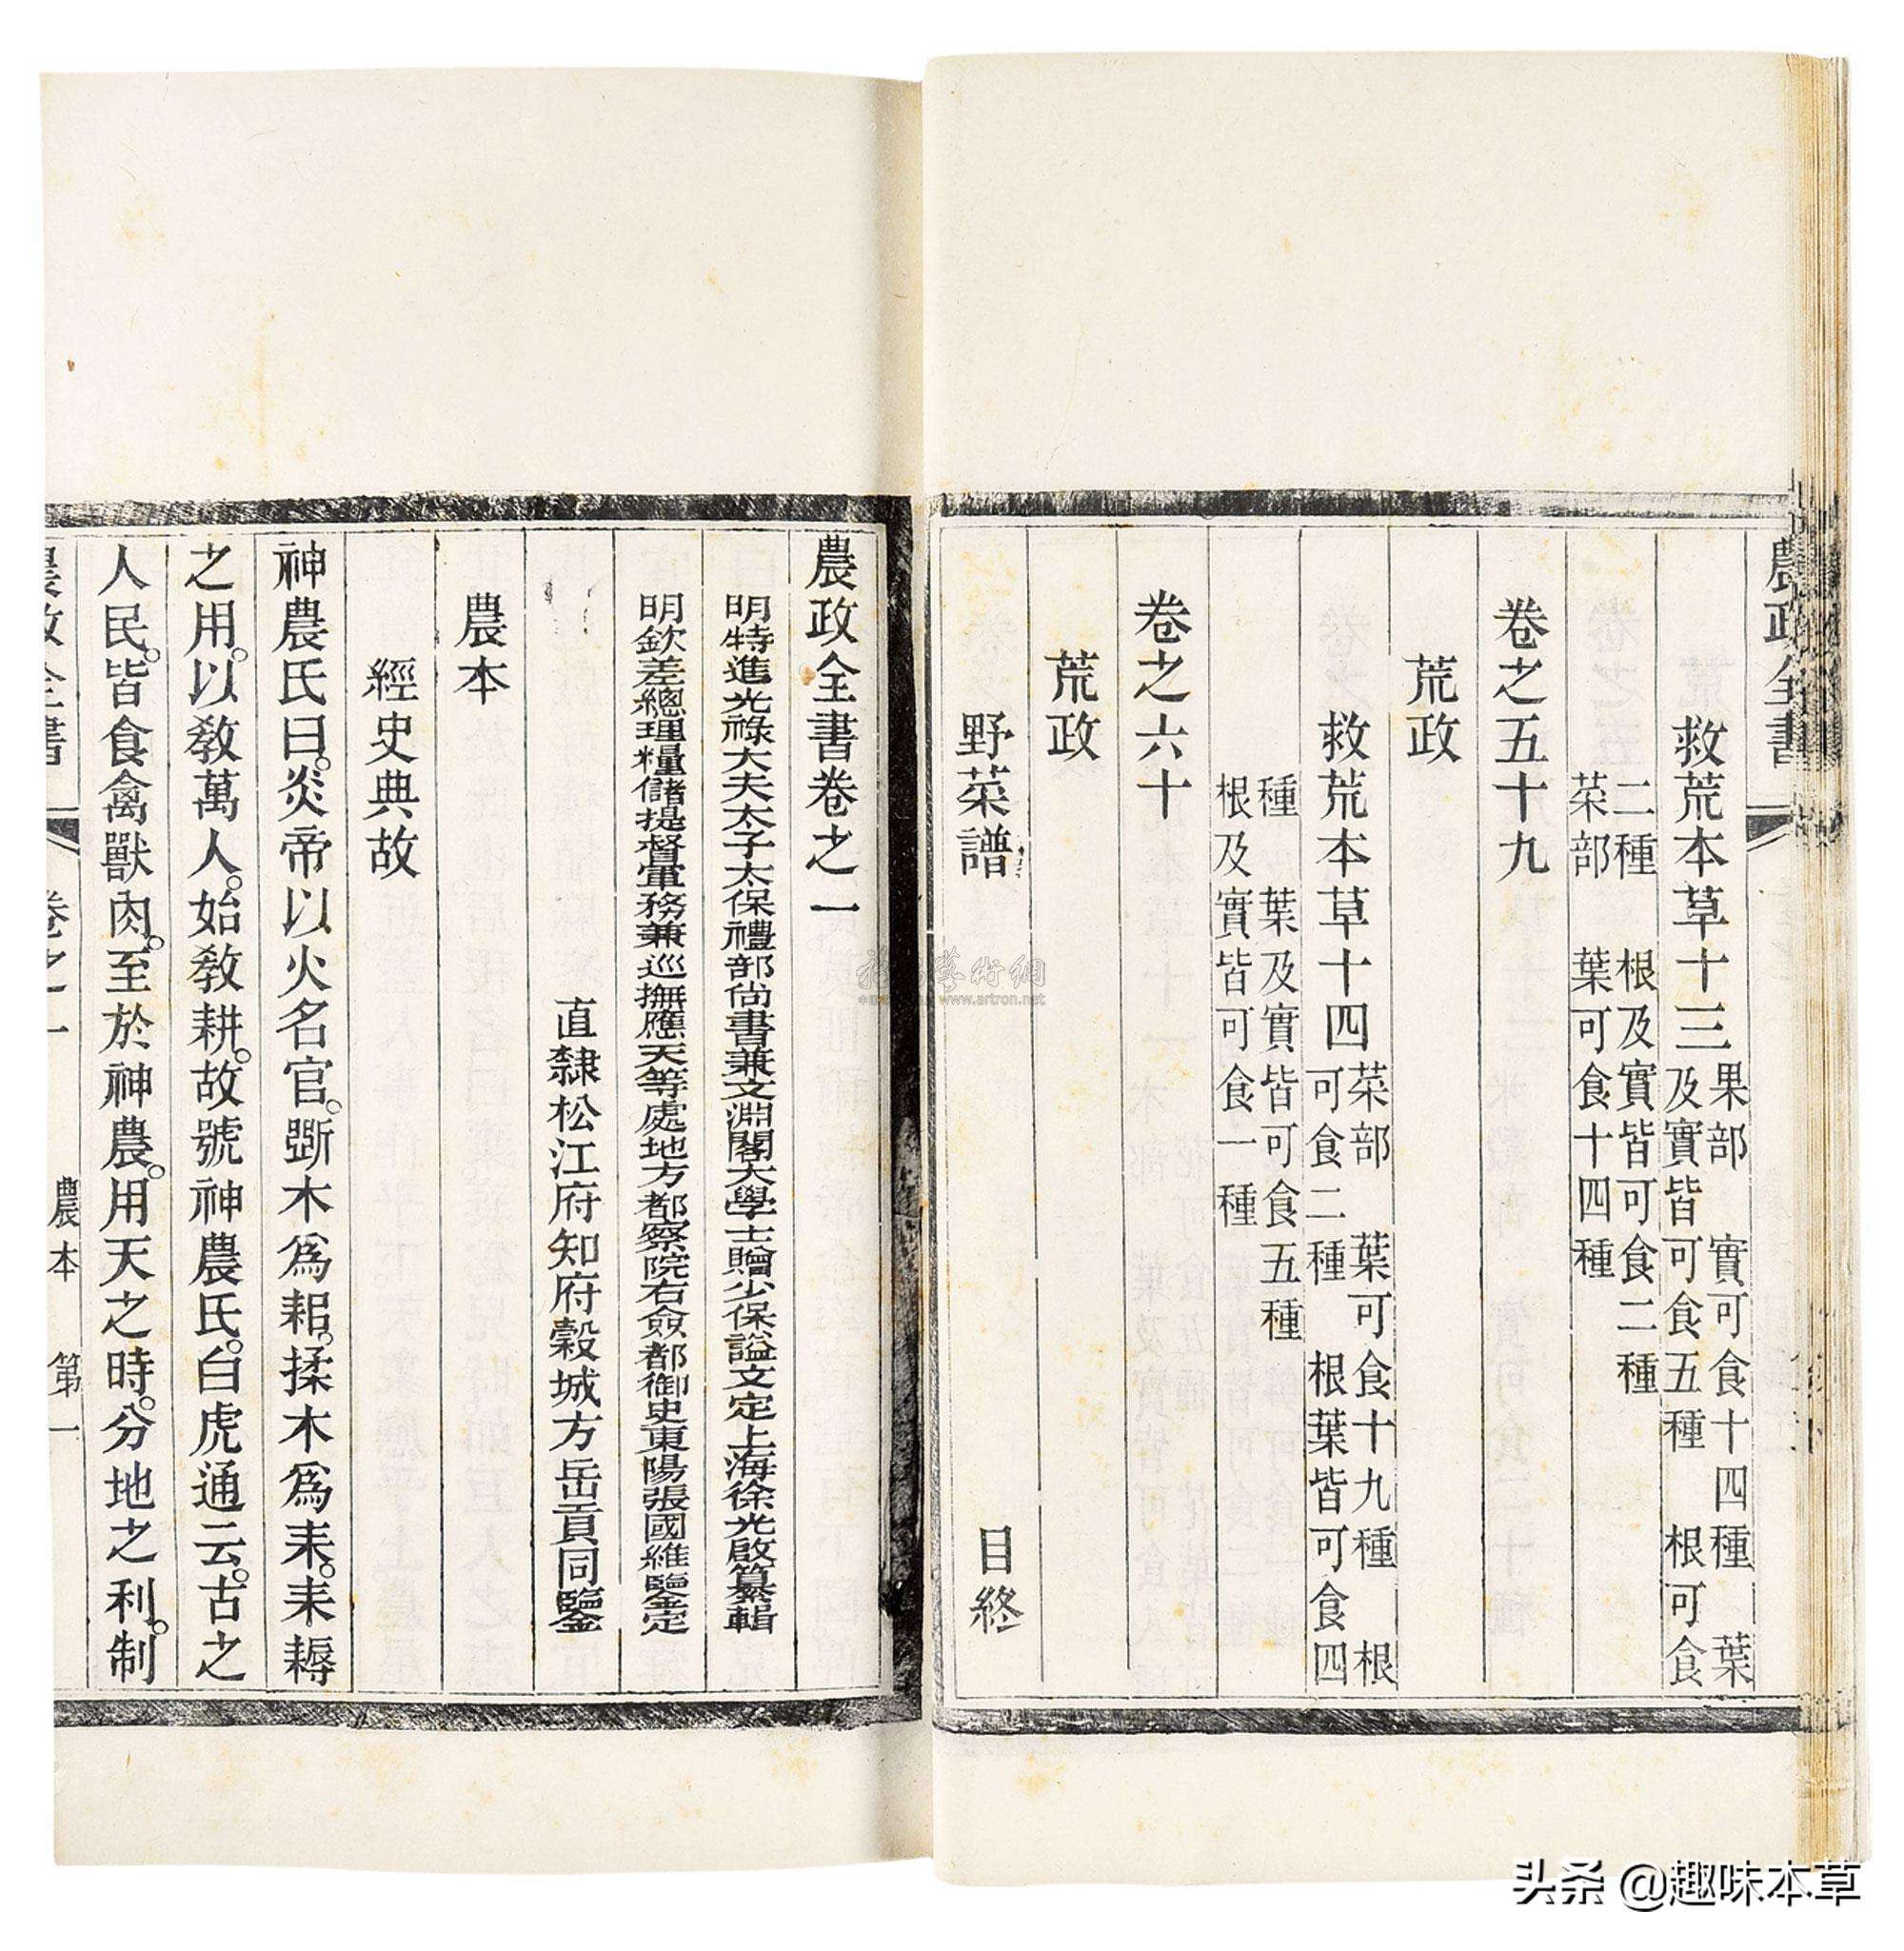 農政全書
救荒本草十三 果部 實可食十四種 葉
及實皆可食五種 根可食
二種 根及實皆可食二種
菜部 葉可食十四種
卷之五十九
荒政
救荒本草十四 菜部 葉可食十九種 根
可食二種 根葉皆可食四
種 葉及實皆可食五種
根及實皆可食一種
卷之六十
荒政
野菜譜
目終
農政全書卷之一
明特進光祿大夫太子太保禮部尚書兼文淵閣大學士贈少保謚文定上海徐光啟纂輯
明欽差總理糧儲提督軍務兼巡撫應天等處地方都察院右僉都御史東陽張國維鑒定
直隸松江府知府穀城方岳貢同鑒
農本
經史典故
神農氏曰。炎帝以火名官。斲木爲耜。揉木爲耒。耒耨
之用。以敎萬人。始敎耕。故號神農氏。白虎通云。古之
人民。皆食禽獸肉。至於神農。用天之時。分地之利。制
農政全書 卷之一 農本 第一
藝術網
www.artron.net
头条 @趣味本草